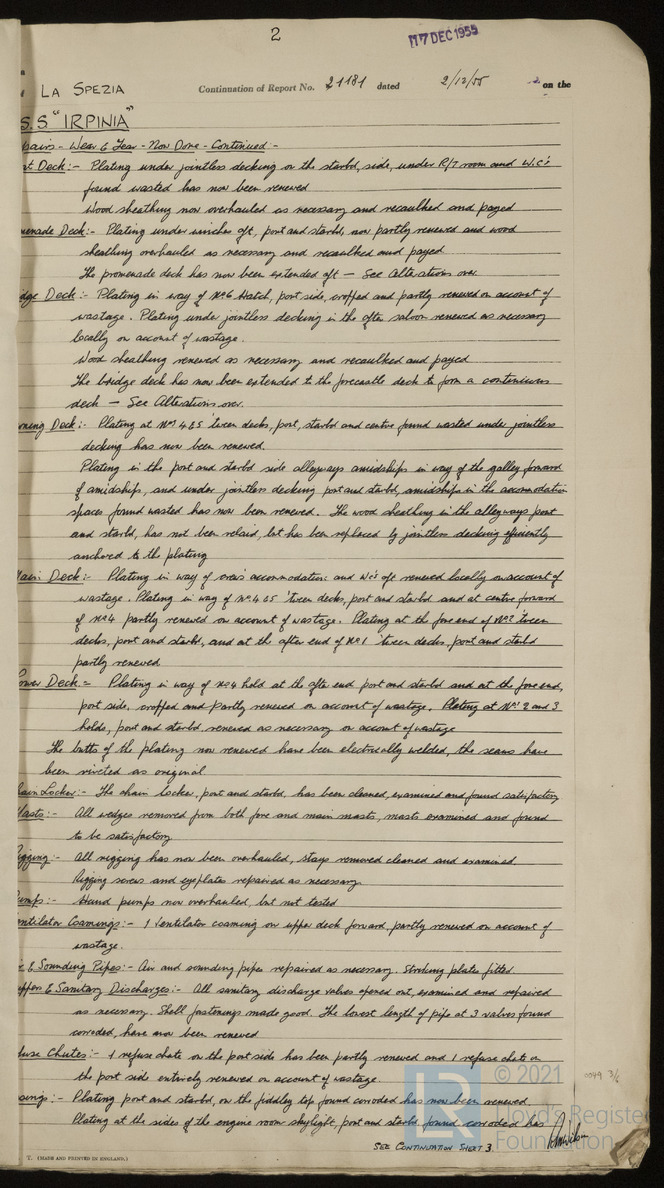 2
17 DEC 1955
LA SPEZIA Continuation of Report No. 21181 dated 2/12/55 on the
S.S "IRPINIA"
pairs - Wear & Tear - Now Done - Continued -
at Deck:- Plating under jointless decking on the starbd, side, under R/T room and W.C's
found wasted has now been renewed
Wood sheathing now overhauled as necessary and recaulked and payed
menade Deck:- Plating under winches aft, port and starbd, now partly renewed and wood
sheathing overhauled as necessary and recaulked and payed
The promenade deck has now been extended aft - See Alterations over
dge Deck:- Plating in way of No 6 Hatch, port side, cropped and partly renewed on account of
wastage. Plating under jointless decking in the after saloon renewed as necessary
locally on account of wastage.
Wood sheathing renewed as necessary and recaulked and payed
The bridge deck has now been extended to the forecastle deck to form a continuous
deck - See Alterations over.
wning Deck:- Plating at Nos 4 & 5 'tween decks, port, starbd and centre found wasted under jointless
decking has now been renewed.
Plating in the port and starbd side alleyways amidships in way of the galley forward
of amidship, and under jointless decking port and starbd, amidships in the accomodation
spaces found wasted has now been renewed. The wood sheathing in the alleyways port
and starbd, has not been relaid, but has been replaced by jointless decking efficiently
anchored to the plating
Main Deck:- Plating in way of crew's accommodation and Wc's aft renewed locally on account of
wastage. Plating in way of No 4 & 5 'tween decks, port and starbd and at centre forward
of No 4 partly renewed on account of wastage. Plating at the fore end of No 2 'tween
decks, port and starbd, and at the after end of No 1 'tween decks, port and starbd
partly renewed
ower Deck:- Plating in way of No 4 hold at the after end port and starbd and at the fore end,
port side, cropped and partly renewed on account of wastage. Plating at Nos 2 and 3
holds, port and starbd, renewed as necessary on account of wastage
The butts of the plating now renewed have been electrically welded, the seams have
been riveted as original
hain Locker:- The chain locker, port and starbd, has been cleaned, examined and found satisfactory
Masts:- All wedges removed from both fore and main masts, masts examined and found
to be satisfactory
igging:- All rigging has now been overhauled, stays removed cleaned and examined
Rigging screws and eyeplates repaired as necessary
umps:- Hand pumps now overhauled, but not tested
entilator Coamings:- 1 Ventilator coaming on upper deck forward, partly renewed on account of
wastage.
r & Sounding Pipes:- Air and sounding pipes repaired as necessary. Striking plates fitted.
uppers & Sanitary Discharges:- All sanitary discharge valves opened out, examined and repaired
as necessary. Shell fastenings made good. The lowest length of pipe at 3 valves found
corroded, have now been renewed
fuse Chutes:- 1 refuse chute on the port side has been partly renewed and 1 refuse chute on
the port side entirely renewed on account of wastage.
sings:- Plating port and starbd, on the fiddley top found corroded has now been renewed
Plating at the sides of the engine room skylight, port and starbd found corroded has
SEE CONTINUATION SHEET 3.
T. (MADE AND PRINTED IN ENGLAND.)
0049 3/6
LR © 2021
Lloyd's Register
Foundation